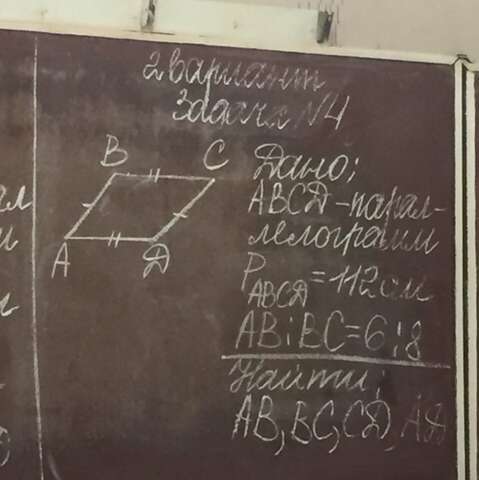 2 вариант
Задача №4
B C
A D
Дано:
ABCD - парал-
лелограмм
P ABCD = 112 см
AB:BC=6:8
Найти:
AB, BC, CD, AD